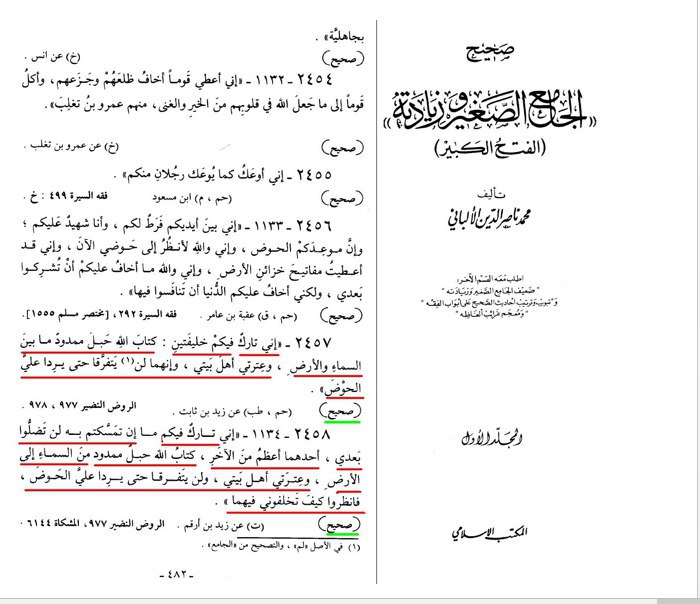 صحيح
«الجامع الصغير وزيادته»
(الفتح الكبير)
تأليف
محمد ناصر الدين الألباني
اطلب معه القسم الآخر:
"ضعيف الجامع الصغير وزيادته"
و"تبويب وترتيب أحاديث الصحيح على أبواب الفقه
ومعجم غرائب ألفاظه"
المجلد الأول
المكتب الاسلامي
بجاهليَّة» .
(صحيح) (خ) عن انس .
٢٤٥٤ ـ ١١٣٢ ـ «إني أعطي قَوماً أخافُ ظلَعَهُمْ وجَزَعهم ، وأكلُ
قوماً إلى ما جَعلَ الله في قلوبهم منَ الخيرِ والغنى، منهم عمرو بنُ تغلِبَ» .
(صحيح) (خ) عن عمرو بن تغلب .
٢٤٥٥ ـ إني أوعَكُ كما يُوعَك رجُلانِ منكم» .
(صحيح) (حم ، م) ابن مسعود فقه السيرة ٤٩٩ : خ .
٢٤٥٦ ـ ١١٣٣ ـ «إني بينَ أيديكم فَرَطٌ لكم ، وأنا شهيدٌ عَليكم ؛
وإنَّ موعِدَكمْ الحوض ، وإني والله لأنظُرُ إلى حَوضي الآنَ ، وإني قد
أعطيتُ مفاتيحَ خزائنِ الأرضِ ، وإني والله ما أخافُ عليكمْ أنْ تُشركوا
بَعدي ، ولكني أخافُ عليكم الدُّنيا أن تَنافَسوا فيها» .
(صحيح) (حم ، ق) عقبة بن عامر . فقه السيرة ٢٩٢ ، [مختصر مسلم ١٥٥٥] .
٢٤٥٧ ـ «إني تاركٌ فيكمْ خليفَتينِ : كتابَ اللهِ حَبلٌ ممدودٌ ما بينَ
السماءِ والأرضِ ، وعِترتي أهلَ بَيتي ، وإنهما لن(١) يَتفرَّقا حتى يرِدا عليَّ
الحوْضَ» .
(صحيح) (حم ، طب) عن زيد بن ثابت . الروض النضير ٩٧٧ ، ٩٧٨ .
٢٤٥٨ ـ ١١٣٤ ـ «إني تاركٌ فيكم ما إن تمَسَّكتم به لن تَضلُّوا
بَعدي ، أحدهما أعظمُ منَ الآخَرِ ، كتابُ الله حبلٌ ممدود منَ السماءِ إلى
الأرضِ ، وعِترَتي أهل بَيتي ، ولن يَتفرقا حتى يردا عليَّ الحَوضَ ،
فانظروا كيفَ تَخلفوني فيهما» .
(صحيح) (ت) عن زيد بن أرقم . الروض النضير ٩٧٧، المشكاة ٦١٤٤ .
(١) في الأصل «لم» ، والتصحيح من «الجامع» .
ـ ٤٨٢ ـ